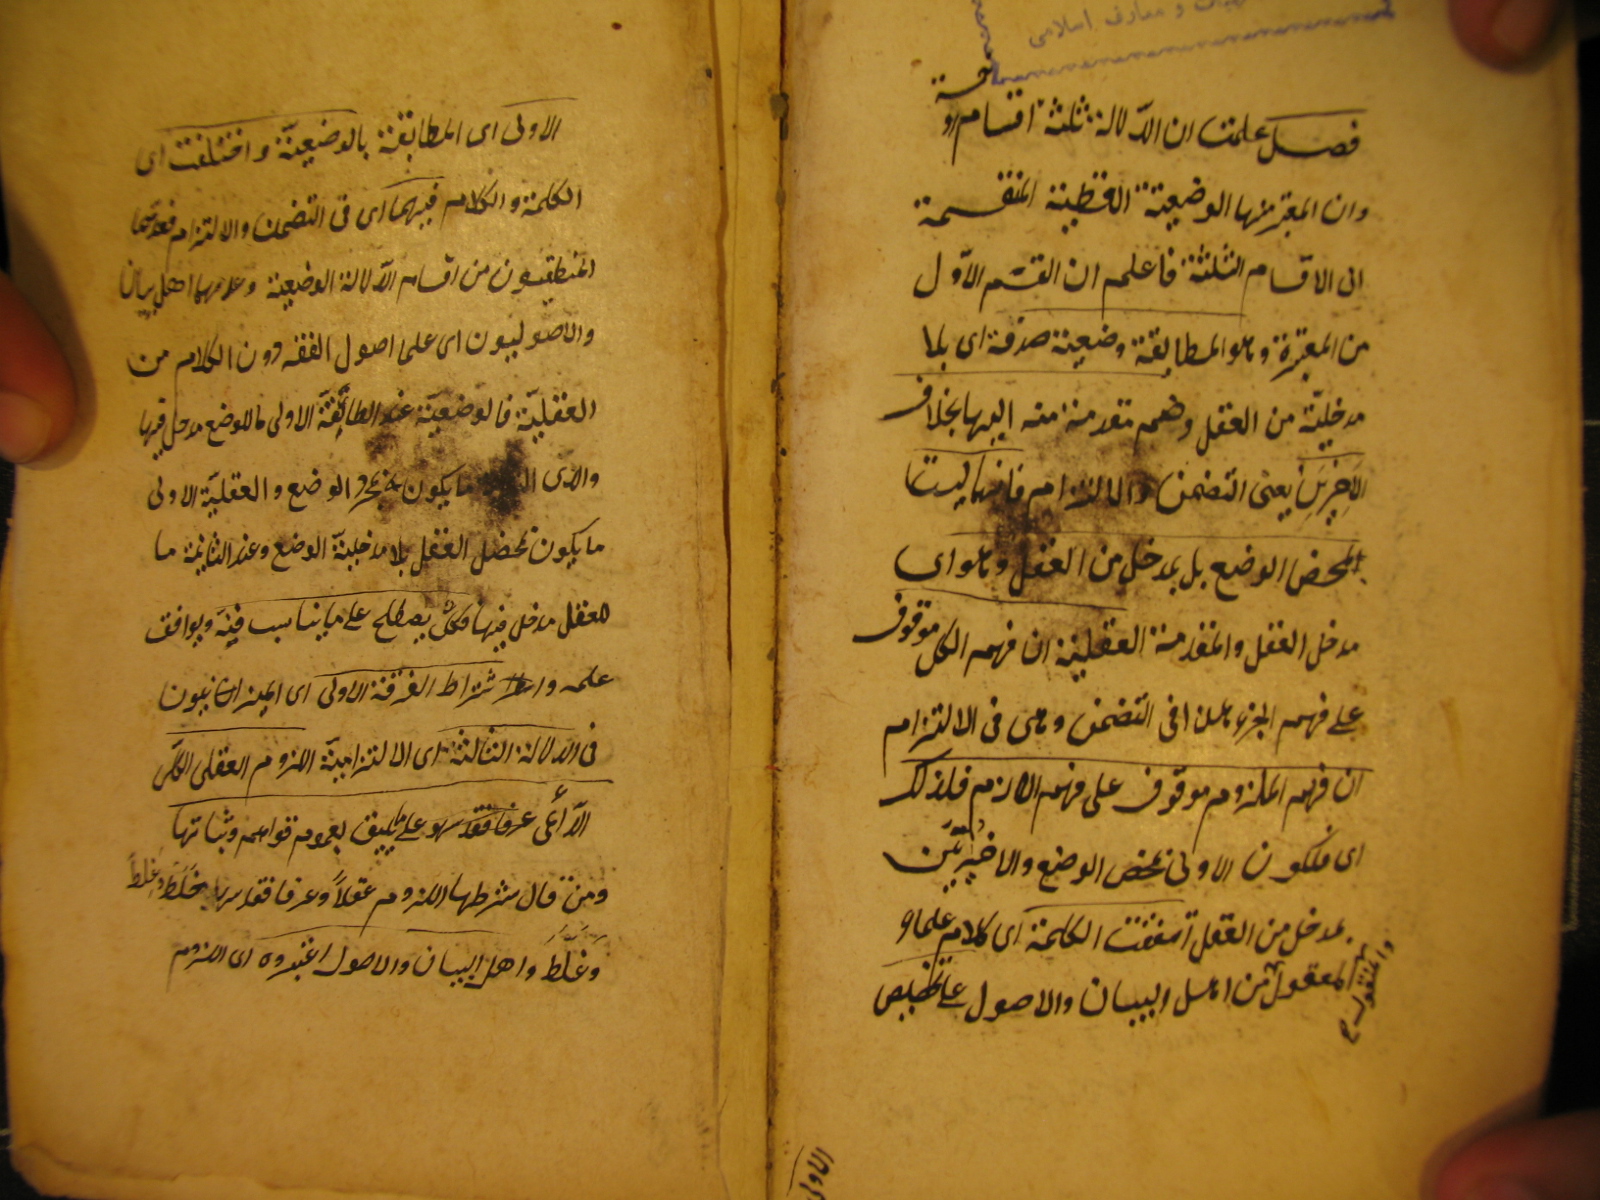 معارف اسلامی
فصل علمت ان الدلالة ثلثة اقسام
وان المعتبر منها الوضعية اللفظية المنقسمة
الى الاقسام الثلثة فاعلم ان القسم الاول
من المعتبرة وهو المطابقة وضعية صرفة اى بلا
مدخلية من العقل وضم مقدمة منه اليها بخلاف
الاخيرين يعنى التضمن والالتزام فانهما ليست
بمحض الوضع بل بمدخل من العقل وهو اى
مدخل العقل والمقدمة العقلية ان فهم الكل موقوف
على فهم الجزء هذا فى التضمن وهى فى الالتزام
ان فهم الملزوم موقوف على فهم اللازم فلذلك
اى فلكون الاولى بمحض الوضع والاخيرتين
بمدخل من العقل اتفقت الكلمة اى كلام علماء
المعقول والمنقول من اهل البيان والاصول على تخصيص
الاولى
الاولى اى المطابقة بالوضعية واختلفت اى
الكلمة والكلام فيهما اى فى التضمن والالتزام فعدهما
المنطقيون من اقسام الدلالة الوضعية وعدهما اهل بيان
والاصوليون اى علماء اصول الفقه دون الكلام من
العقلية فالوضعية عند الطائفة الاولى ما للوضع مدخل فيها
ما يكون بمجرد الوضع والعقلية الاولى
ما يكون بمحض العقل بلا مدخلية الوضع وعند الثانية ما
للعقل مدخل فيها وكل يصطلح على ما يناسب فنه ويوافق
علمه واشتراط الفرقة الاولى اى الميزانيون
فى الدلالة الثالثة اى الالتزامية اللزوم العقلى الكلى
عرفا فقد سهو على يليق بعموم قواعدهم وثباتها
ومن قال شرطها اللزوم عقلاً وعرفا فقد سها خَلَطَ وغلطاً
وغَلَطَ واهل البيان والاصول اعتبروه اى اللزوم